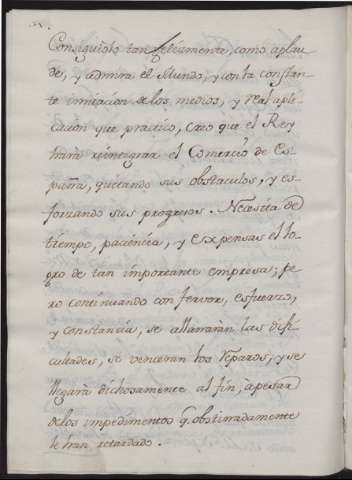 Consiguiolo tan felizmente, como aplau
de, y admira el Mundo, y con la constan
te imitacion de los medios, y real apli
cacion que practicó, creo que el Rey
hará reintegrar el Comercio de Es
paña, quitando sus obstaculos, y es
forzando sus progresos. Necesita de
tiempo, paciencia, y expensas el lo
gro de tan importante empresa; pe
ro continuando con fervor, esfuerzo,
y constancia, se allanarán las difi
cultades, se vencerán los reparos, y se
llegará dichosamente al fin, à pesar
de los impedimentos q. obstinadamente
le han retardado.